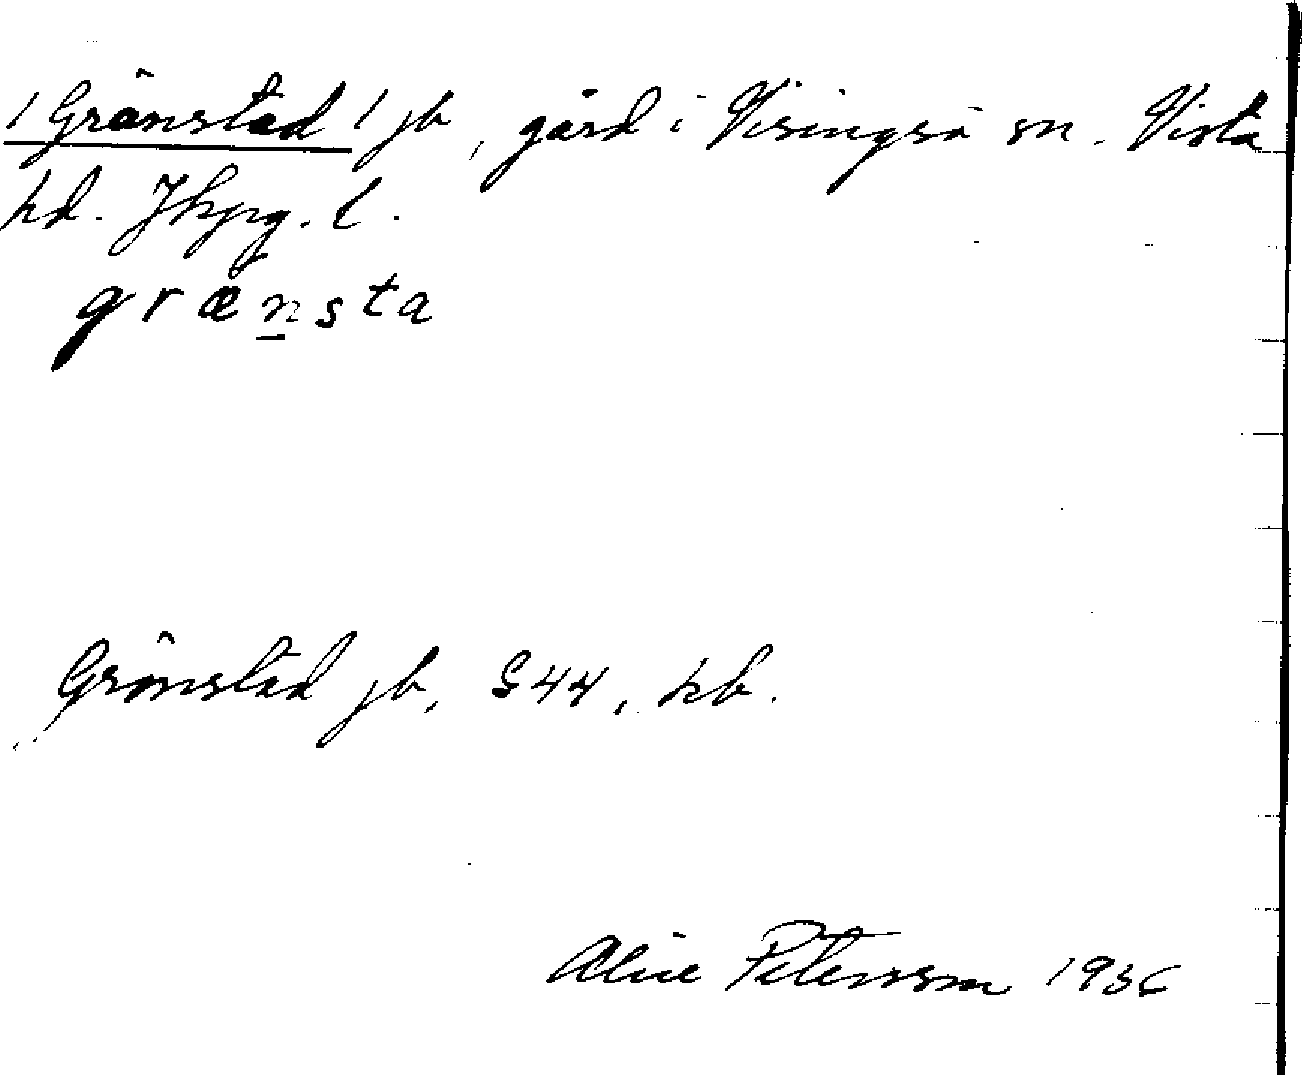 /Gränstad/ jb, gård i Visingsö sn. Vista
hd. Jkpg. l.
grænsta
Grönstad jb, S44, hb.
Alice Petersson 1936